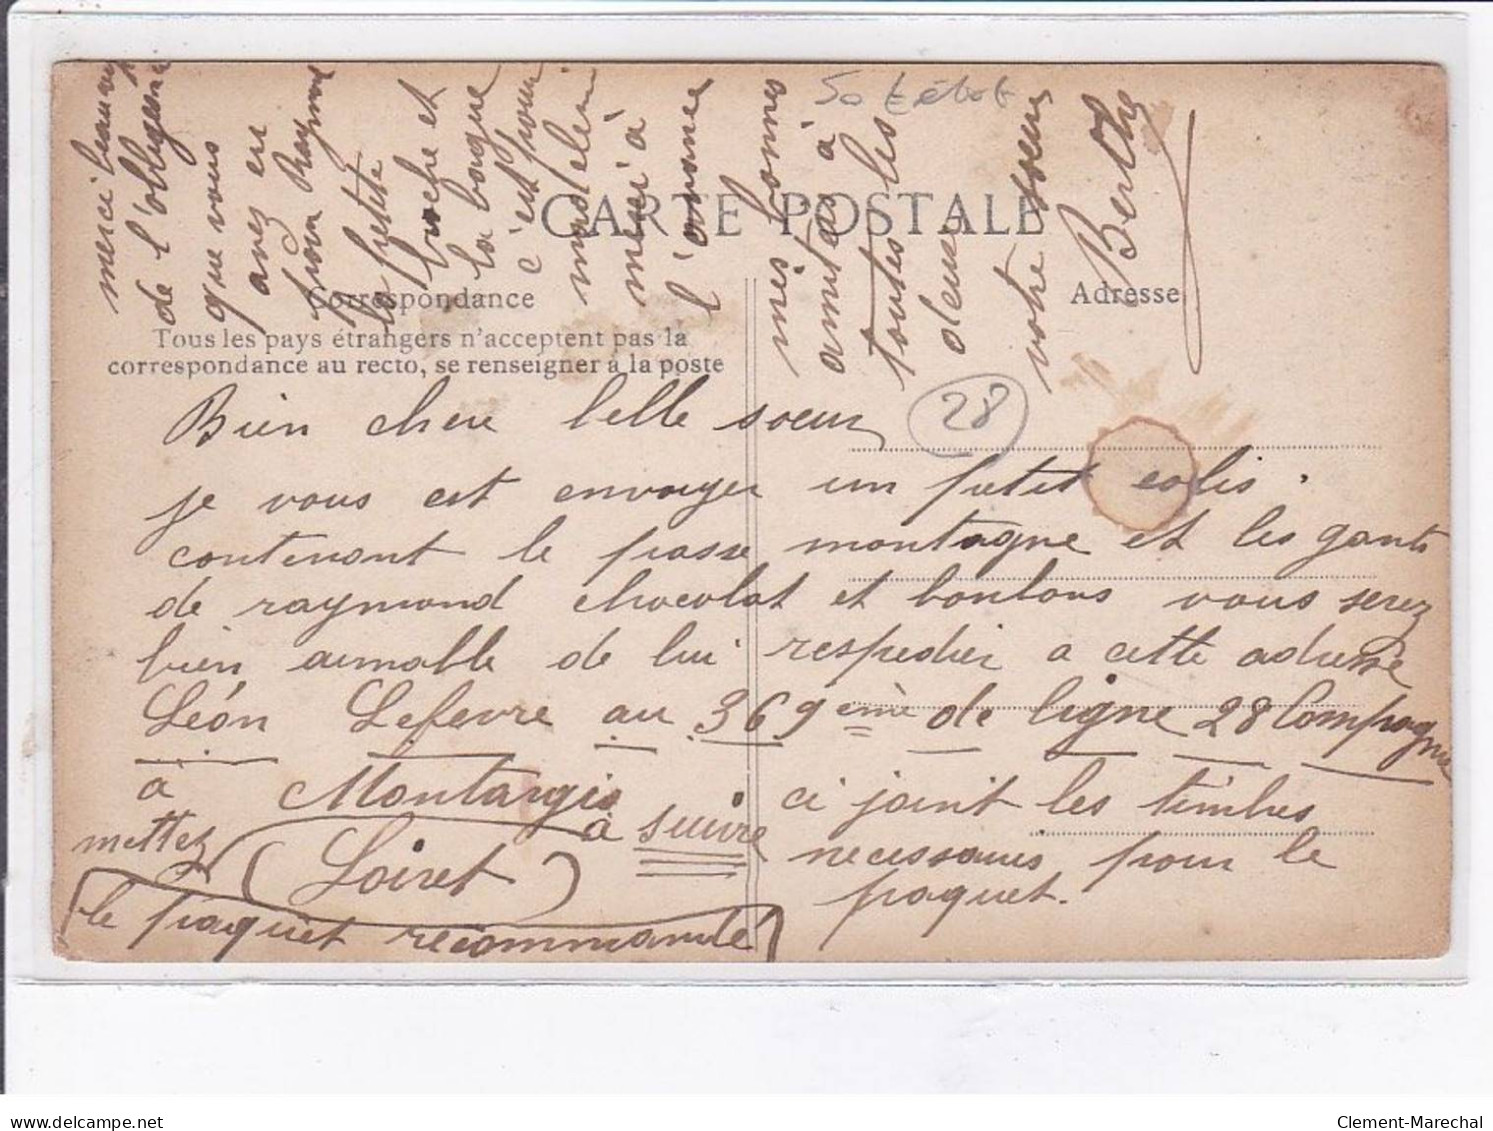 CARTE POSTALE
Correspondance
Tous les pays étrangers n'acceptent pas la
correspondance au recto, se renseigner à la poste
Adresse
28
Bien chere belle soeur
je vous est envoyer un petit colis.
contenant le passe montagne et les gants
de raymond chocolat et bonbons vous serez
bien aimable de lui respedier a cette adresse
Léon Lefevre au 369ème de ligne 28 Compagnie
à Montargis
(Loiret)
à suivre
mettez
le paquet recommandé
ci joint les timbres
necessaires pour le
paquet.
merci beaucoup
de l'obligence
que vous
avez eu
pour Raymond
la petite
broche et
la bague
c'est pour
madeleine
merci à
l'avance
mes bonnes
amitiés à
toutes les
deux
votre soeur
Berthe